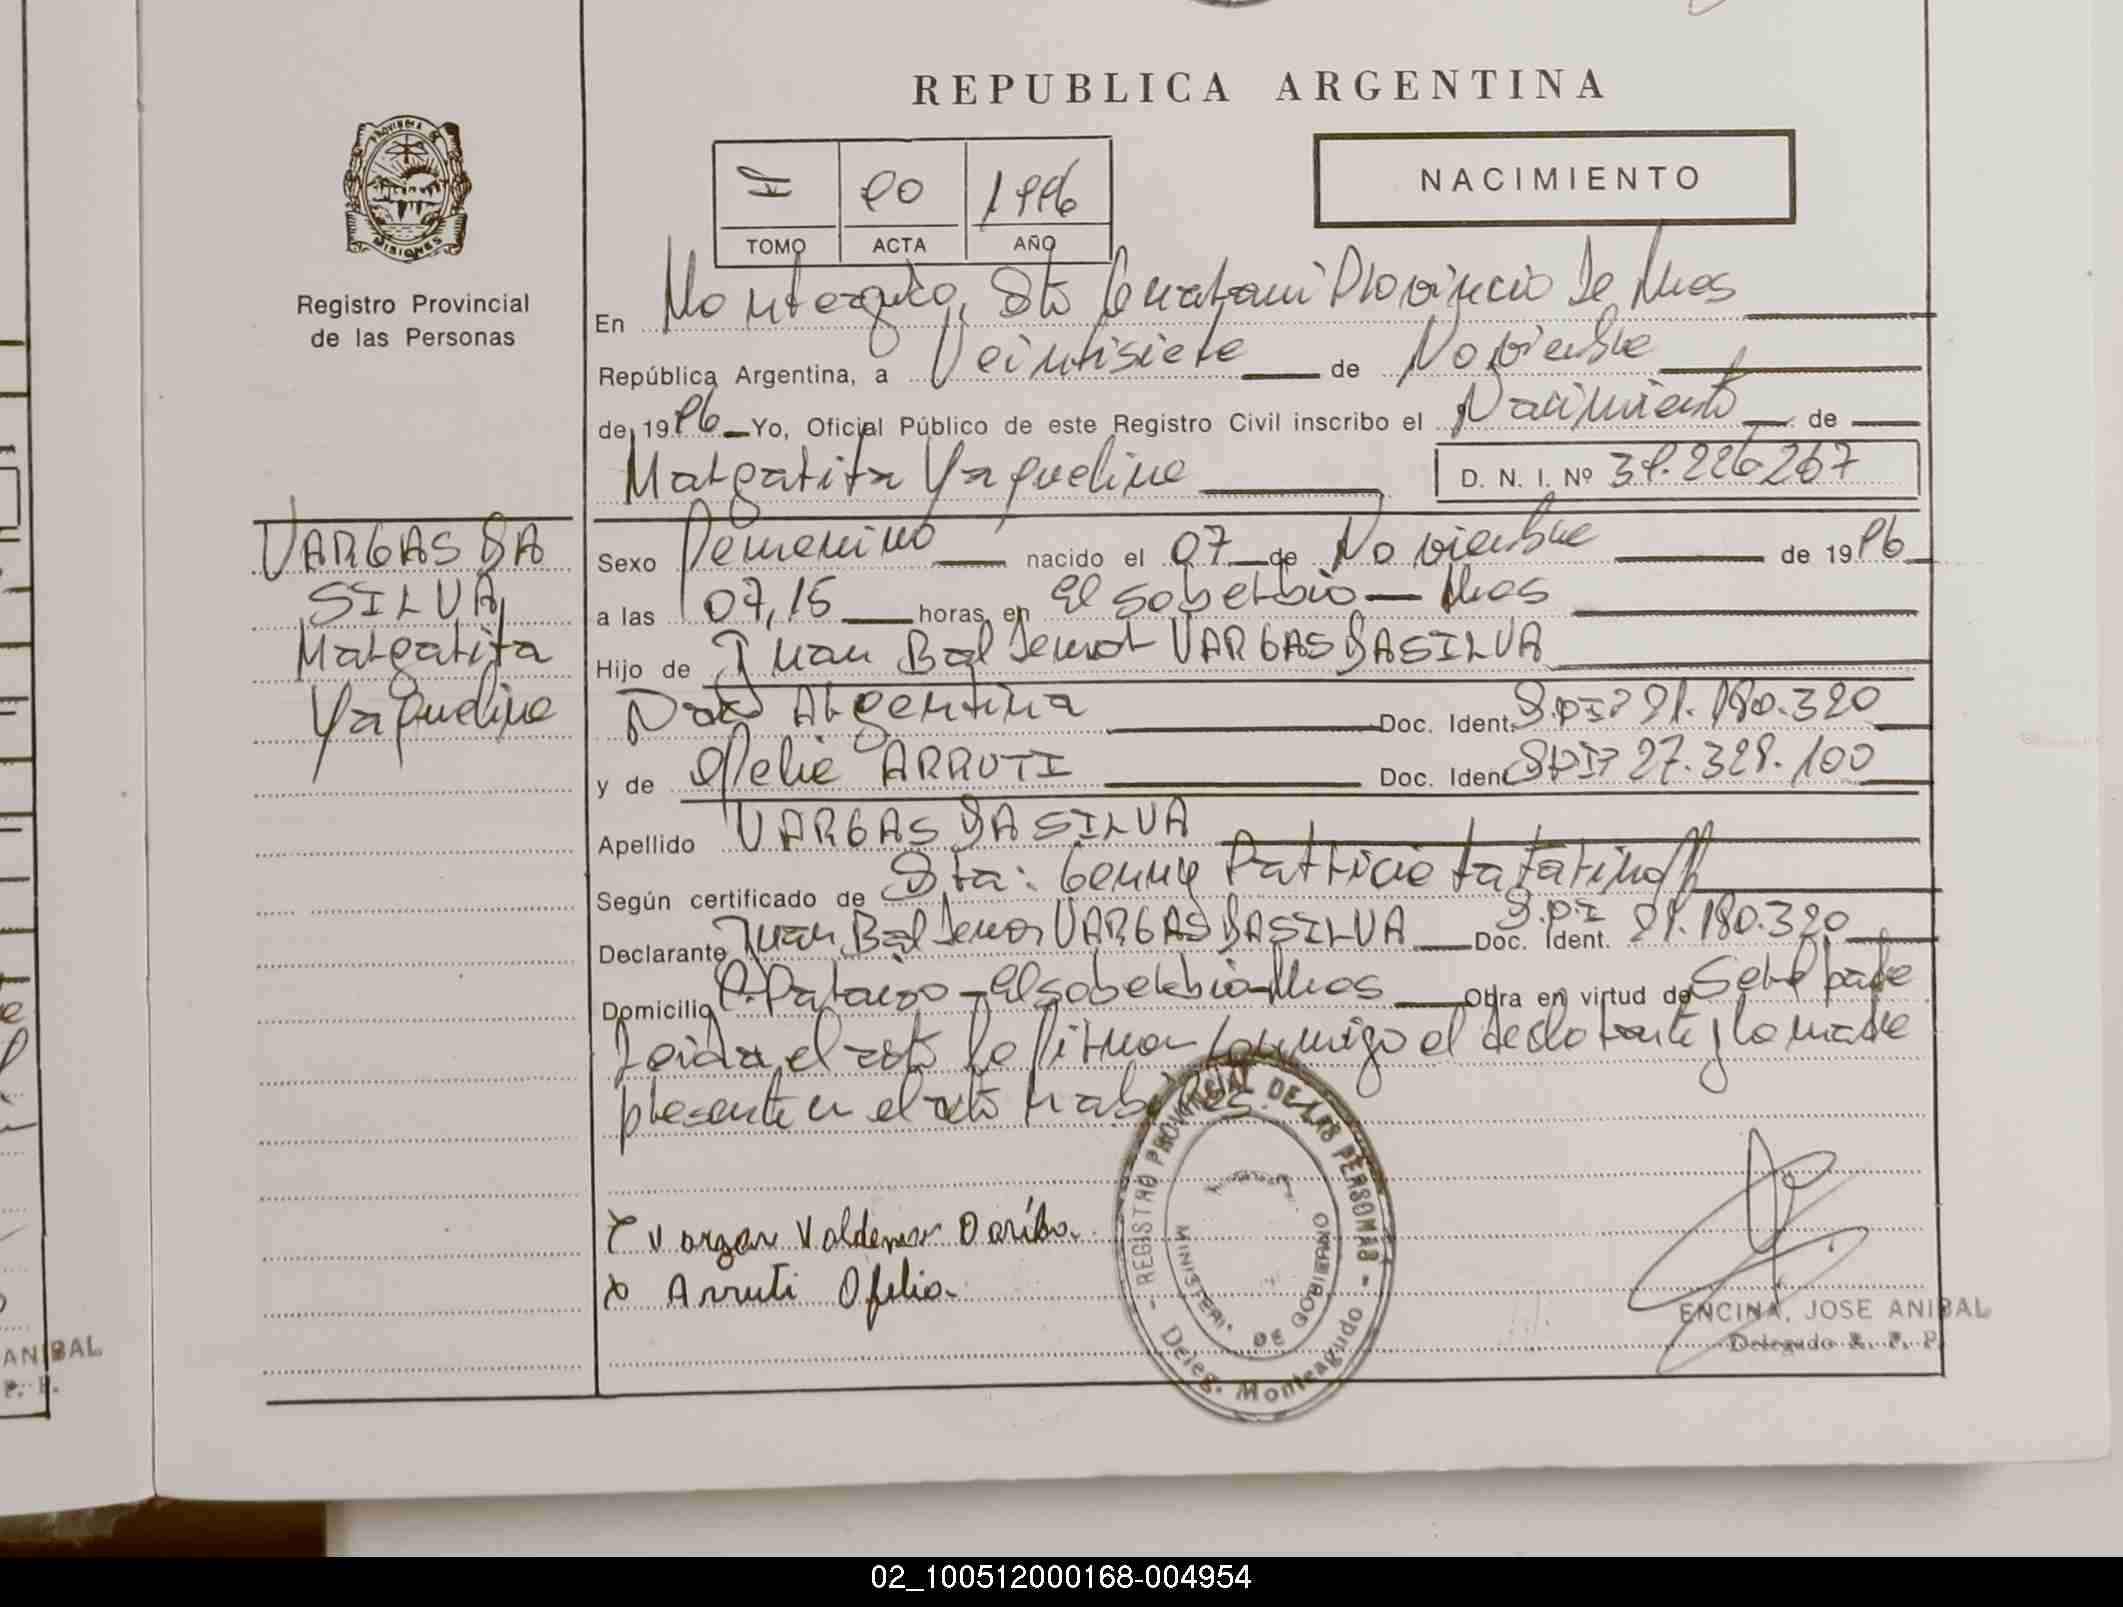 REPUBLICA ARGENTINA
PROVINCIA DE
MISIONES
Registro Provincial
de las Personas
II 90 1996
TOMO ACTA AÑO
NACIMIENTO
En Monteagudo, Dto Guaraní Provincia de Mnes
República Argentina, a Veintisiete de Noviembre
de 1996 Yo, Oficial Público de este Registro Civil inscribo el Nacimiento de
Margarita Yaqueline D. N. I. Nº 39.226.267
VARGAS DA
SILVA
Margarita
Yaqueline
Sexo Femenino nacido el 07 de Noviembre de 1996
a las 07,15 horas, en El Soberbio - Mnes
Hijo de Juan Baldemar VARGAS DA SILVA
Nac Argentina Doc. Ident. D.N.I 21.180.320
y de Ofelia ARRUTI Doc. Ident. D.N.I 27.328.100
Apellido VARGAS DA SILVA
Según certificado de Dra: Genny Patricia Tatarinoff
Declarante Juan Baldemar VARGAS DA SILVA Doc. Ident. D.N.I 21.180.320
Domicilio P. Paraiso - El Soberbio - Mnes Obra en virtud de Ser el padre
Leida el acta la firman conmigo el declarante y la madre
presente en el acto
REGISTRO PROVINCIAL DE LAS PERSONAS
MINISTERI. DE GOBIERNO
Deleg. Monteagudo
x Vargas Valdemar Daribo.
x Arruti Ofelia.
ENCINA, JOSE ANIBAL
Delegado R. P. P.
ANIBAL
P. P.
02_100512000168-004954